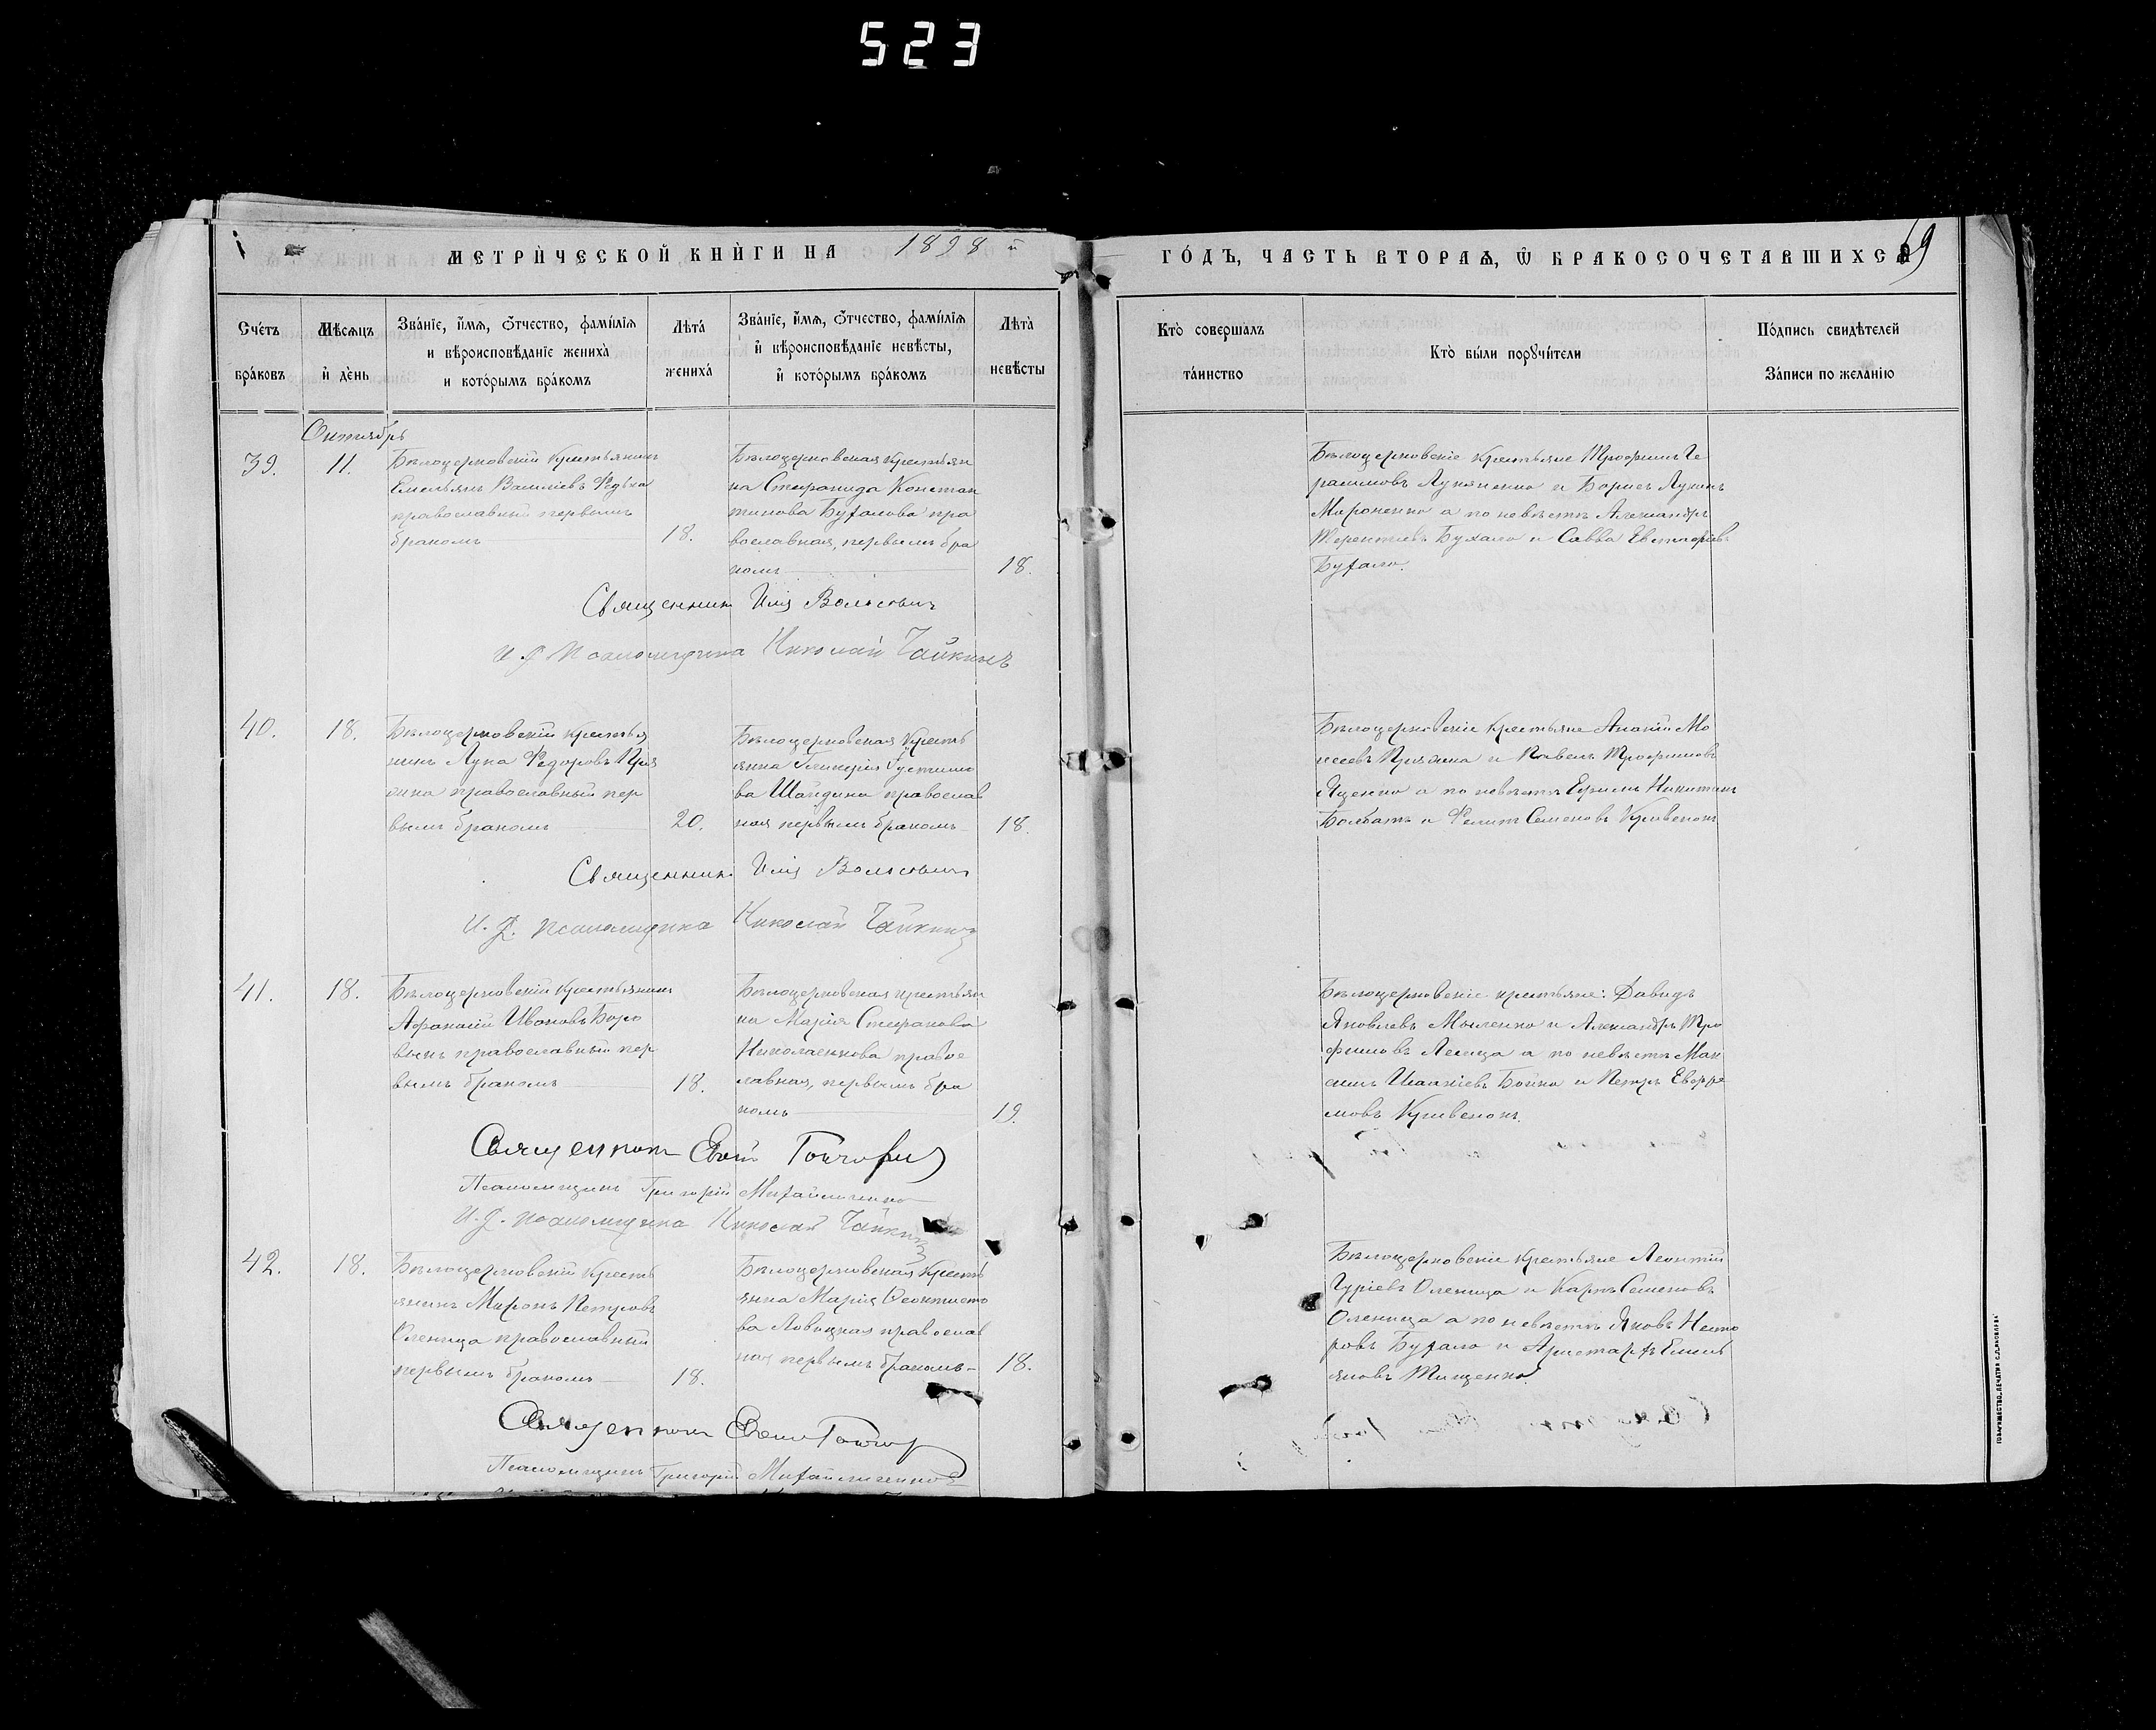 523
МЕТРИ́ЧЕСКОЙ КНИ́ГИ НА 1898 й ГО́ДЪ, ЧАСТЬ ВТОРАѦ, Ѿ БРАКОСОЧЕТАВШИХСѦ
69
Сче́тъ бра́ковъ
Мѣ́сѧцъ и҆ де́нь
Зва́нїе, и҆́мѧ, ѻ҆́тчество, фами́лїѧ
и вѣроисповѣ́данїе жениха̀
и кото́рымъ бра́комъ
Лѣта̀ жениха́
Зва́нїе, и҆́мѧ, ѻ҆́тчество, фами́лїѧ
и҆ вѣроисповѣ́данїе невѣ́сты,
и҆ кото́рымъ бра́комъ
Лѣта̀ невѣ́сты
Кто̀ соверша́лъ та́инство
Кто̀ бы́ли порꙋчи́тели
По́дпись свидѣ́телей
За́писи по жела́нїю
Октябрь
39.
11.
Бѣлоцерковскій крестьянинъ
Емельянъ Василіевъ Редька
православный первымъ
бракомъ
18.
Бѣлоцерковская крестьян
ка Стефанида Констан
тинова Бухалова пра
вославная, первымъ бра
комъ
18.
Бѣлоцерковскіе крестьяне Трофимъ Ге
расимовъ Лукяненко и Борисъ Лукинъ
Мироненко а по невѣстѣ Александръ
Терентіевъ Бухало и Савва Евстафіевъ
Бухало.
Священникъ Илія
И. д. Псаломщика Николай Чайкинъ
40.
18.
Бѣлоцерковскій крестья
нинъ Лука Федоровъ При
православный пер
вымъ бракомъ
20.
Бѣлоцерковская кресть
янка Гликерія Густино
ва православ
ная первымъ бракомъ
18.
Бѣлоцерковскіе крестьяне Ананій Мо
исеевъ и Павелъ Трофимовъ
Яценко а по невѣстѣ Ефимъ Никитинъ
и Семеновъ Кривенокъ
Священникъ Илія
И. д. псаломщика Николай Чайкинъ
41.
18.
Бѣлоцерковскій крестьянинъ
Афанасій Ивановъ Боро
православный пер
вымъ бракомъ
18.
Бѣлоцерковская крестьян
ка Марія Стефанова
Николаенкова правос
лавная, первымъ бра
комъ
19.
Бѣлоцерковскіе крестьяне: Давидъ
Яковлевъ и Александръ Тро
фимовъ а по невѣстѣ Мак
симъ Бойко и Петръ Евфре
мовъ Кривенокъ.
Священникъ
Псаломщикъ Григорій Михайличенко
И. д. псаломщика Николай Чайкинъ
42.
18.
Бѣлоцерковскій кресть
янинъ Миронъ Петровъ
Оленица православный
первымъ бракомъ
18.
Бѣлоцерковская кресть
янка Марія Феоктисто
ва православ
ная первымъ бракомъ
18.
Бѣлоцерковскіе крестьяне Леонтій
Гуріевъ Оленица и Карпъ Семеновъ
Оленица а по невѣстѣ Яковъ Несто
ровъ Бухало и Аристархъ Емель
яновъ Тищенко
Священникъ
Псаломщикъ Григорій Михайличенко